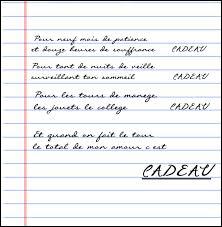 Pour neuf mois de patience
et douze heures de souffrance CADEAU
Pour tant de nuits de veille
surveillant ton sommeil CADEAU
Pour les tours de manege
les jouets le college CADEAU
Et quand on fait le tour
le total de mon amour c est
CADEAU